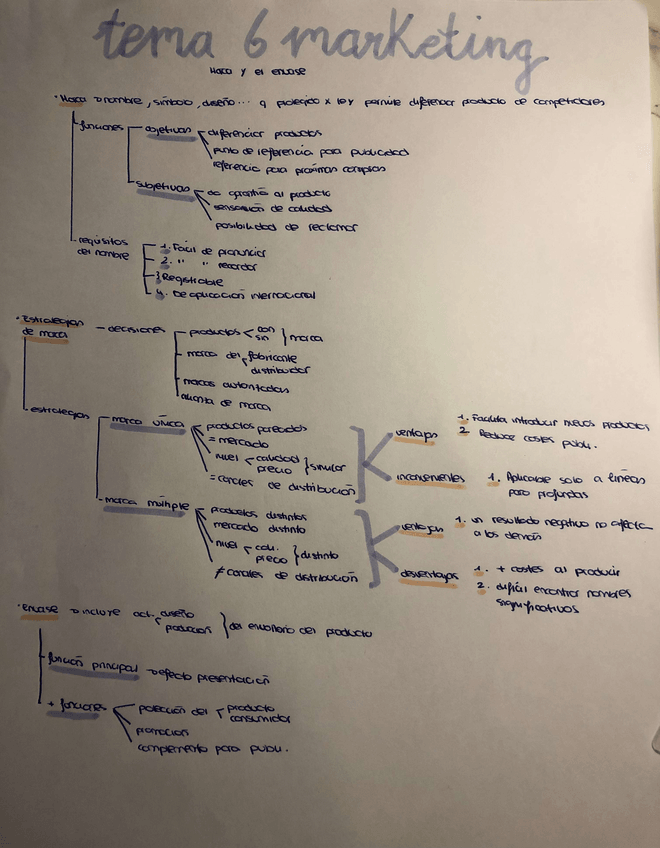 tema 6 marketing
Marca y el envase
· Marca → nombre, símbolo, diseño... q protegido x ley permite diferenciar producto de competidores
funciones
objetivas
diferenciar productos
punto de referencia para publicidad
referencia para próximas compras
subjetivas
da garantía al producto
sensación de calidad
posibilidad de reclamar
requisitos del nombre
1. Fácil de pronunciar
2. " " recordar
3 Registrable
4. De aplicación internacional
· Estrategias de marca
- decisiones
productos < con sin } marca
marca del < fabricante distribuidor
marcas
de marca
estrategias
marca única
productos parecidos
= mercado
nivel < calidad precio } similar
= canales de distribución
ventajas
1. Facilita introducir nuevos productos
2 Reduce costes publi.
inconvenientes
1. Aplicable solo a líneas
profundas
marca múltiple
productos distintos
mercado distinto
nivel < cali. precio } distinto
≠ canales de distribución
ventajas
1. un resultado negativo no afecta
a los demás
desventajas
1. + costes al producir
2. difícil encontrar nombres
significativos
· envase → incluye act. < diseño producción } del envoltorio del producto
función principal → efecto presentación
+ funciones
protección del < producto consumidor
promoción
complemento para publi.